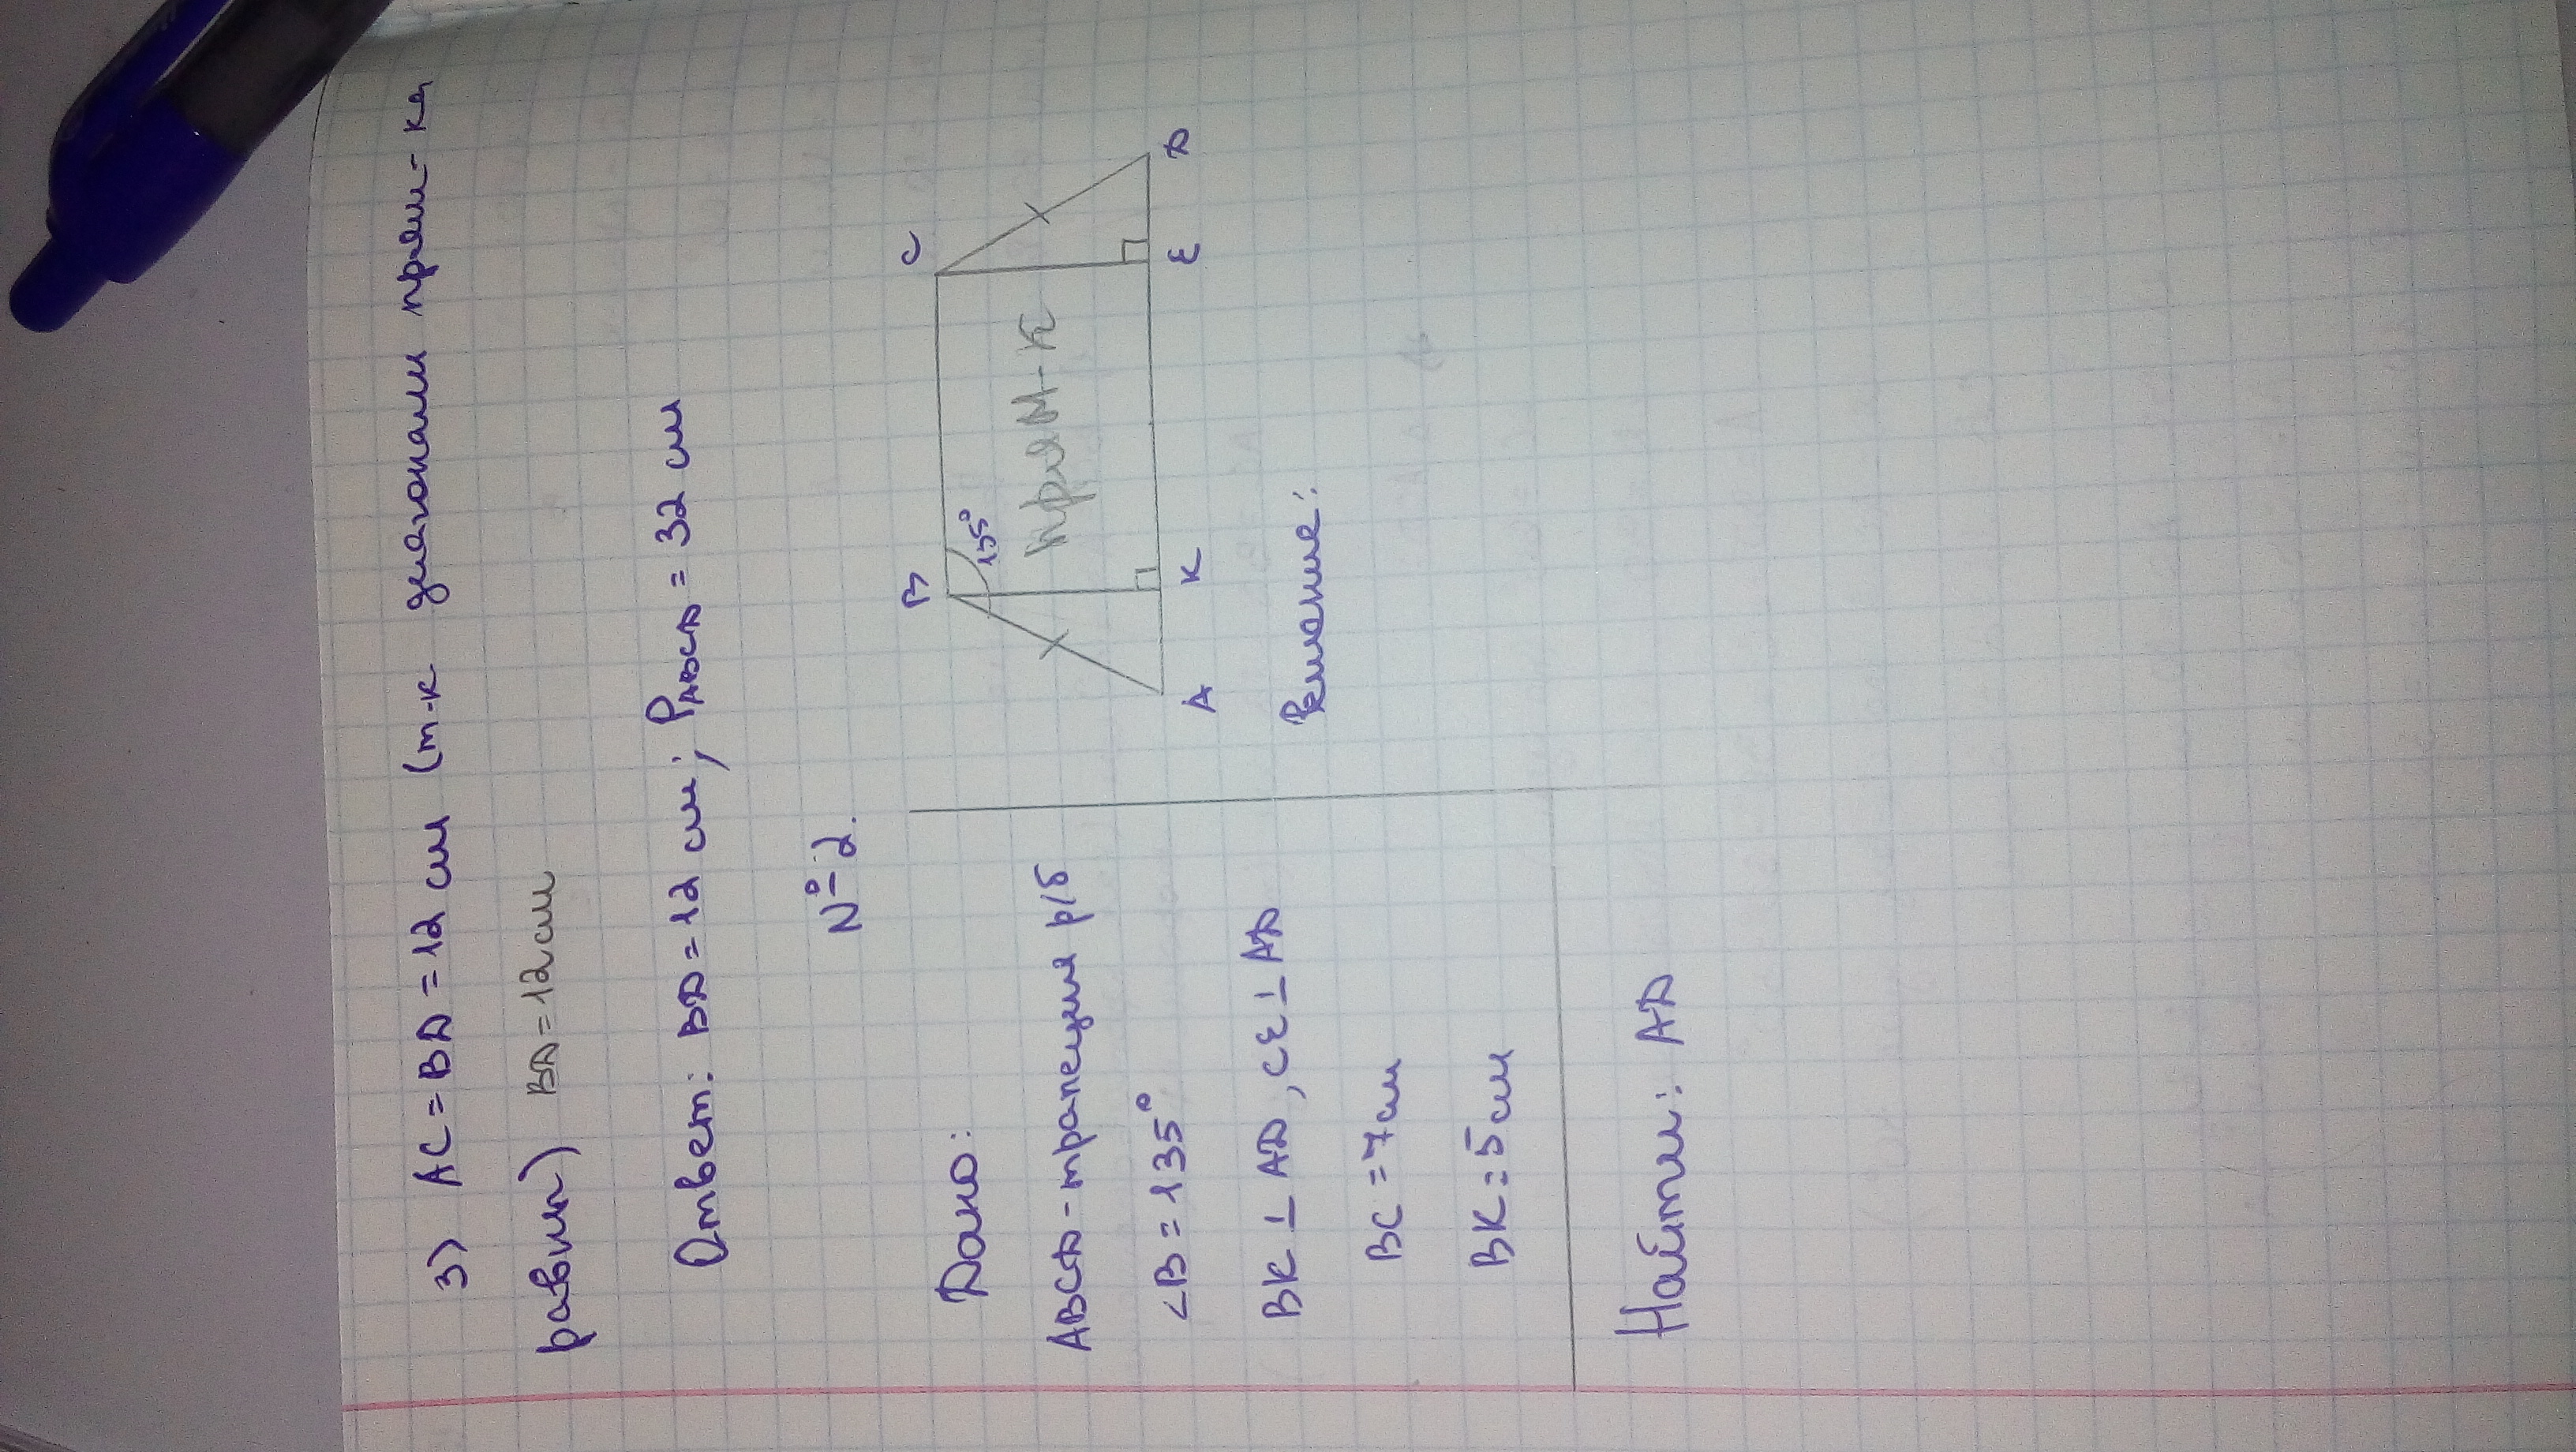 3) AC = BD = 12 см (т-к диагонали прям-ка
равны) BD = 12 см
Ответ: BD = 12 см; PABCD = 32 см
№ 2.
Дано:
ABCD - трапеция р/б
<B = 135°
BK ⊥ AD, CE ⊥ AD
BC = 7 см
BK = 5 см
Найти: AD
B
C
135°
прям-к
A
K
E
D
Решение: